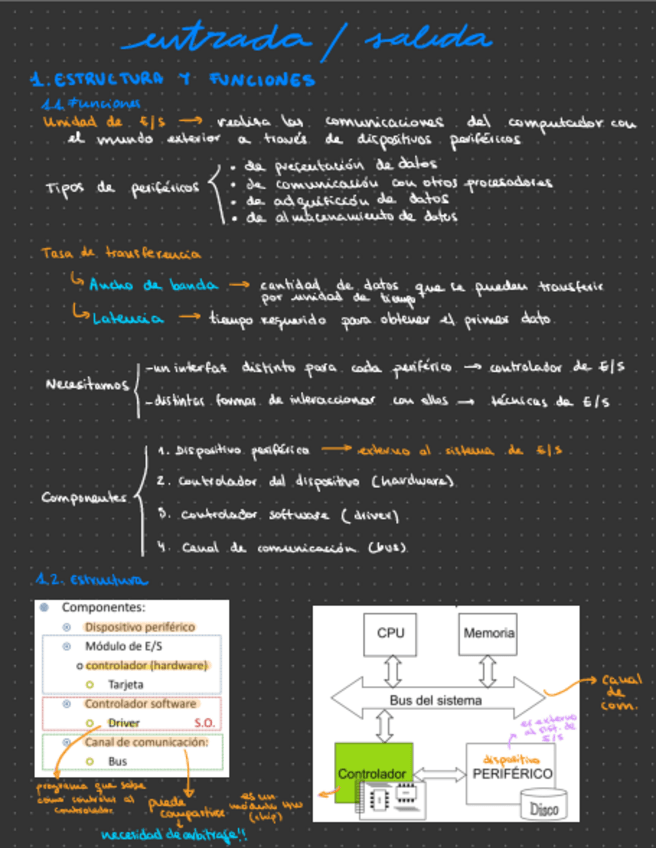 entrada / salida
1. ESTRUCTURA Y FUNCIONES
1.1. Funciones
Unidad de E/S → realiza las comunicaciones del computador con
el mundo exterior a través de dispositivos periféricos
Tipos de periféricos
• de presentación de datos
• de comunicación con otros procesadores
• de adquisición de datos
• de almacenamiento de datos
Tasa de transferencia
↳ Ancho de banda → cantidad de datos que se pueden transferir
por unidad de tiempo
↳ Latencia → tiempo requerido para obtener el primer dato
Necesitamos
- un interfaz distinto para cada periférico → controlador de E/S
- distintas formas de interaccionar con ellos → técnicas de E/S
Componentes
1. Dispositivo periférico → externo al sistema de E/S
2. controlador del dispositivo (hardware)
3. controlador software (driver)
4. Canal de comunicación (bus)
1.2. estructura
Componentes:
Dispositivo periférico
Módulo de E/S
controlador (hardware)
Tarjeta
Controlador software
Driver S.O.
Canal de comunicación:
Bus
programa que sabe
como controlar al
controlador
puede
compartirse
necesidad de arbitraje!!
CPU
Memoria
Bus del sistema
→ canal
de
com.
es externo
al sist. de
E/S
Controlador
dispositivo
PERIFÉRICO
Disco
es un
módulo HW
(chip)